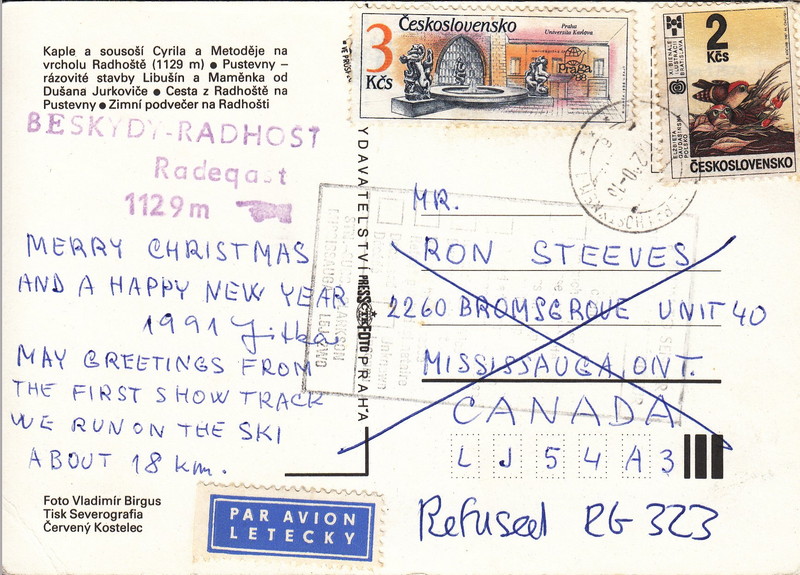 Kaple a sousoší Cyrila a Metoděje na
vrcholu Radhoště (1129 m) ● Pustevny –
rázovité stavby Libušín a Maměnka od
Dušana Jurkoviče ● Cesta z Radhoště na
Pustevny ● Zimní podvečer na Radhošti
BESKYDY-RADHOST
Radegast
1129m
MERRY CHRISTMAS
AND A HAPPY NEW YEAR
1991 Jitka
MAY GREETINGS FROM
THE FIRST SHOW TRACK
WE RUN ON THE SKI
ABOUT 18 km.
Foto Vladimír Birgus
Tisk Severografia
Červený Kostelec
PAR AVION
LETECKY
YDAVATELSTVÍ PRESSFOTO PRAHA
3
Kčs
Československo
Praha
Universita Karlova
praga
88
2
Kčs
BIENÁLE
ILUSTRÁCIÍ
BRATISLAVA
ELŻBIETA
GAUDASIŃSKA
POĽSKO
ČESKOSLOVENSKO
MR.
RON STEEVES
2260 BROMSGROVE UNIT 40
MISSISSAUGA, ONT.
CANADA
L J 5 4 A 3
Refused RG 323